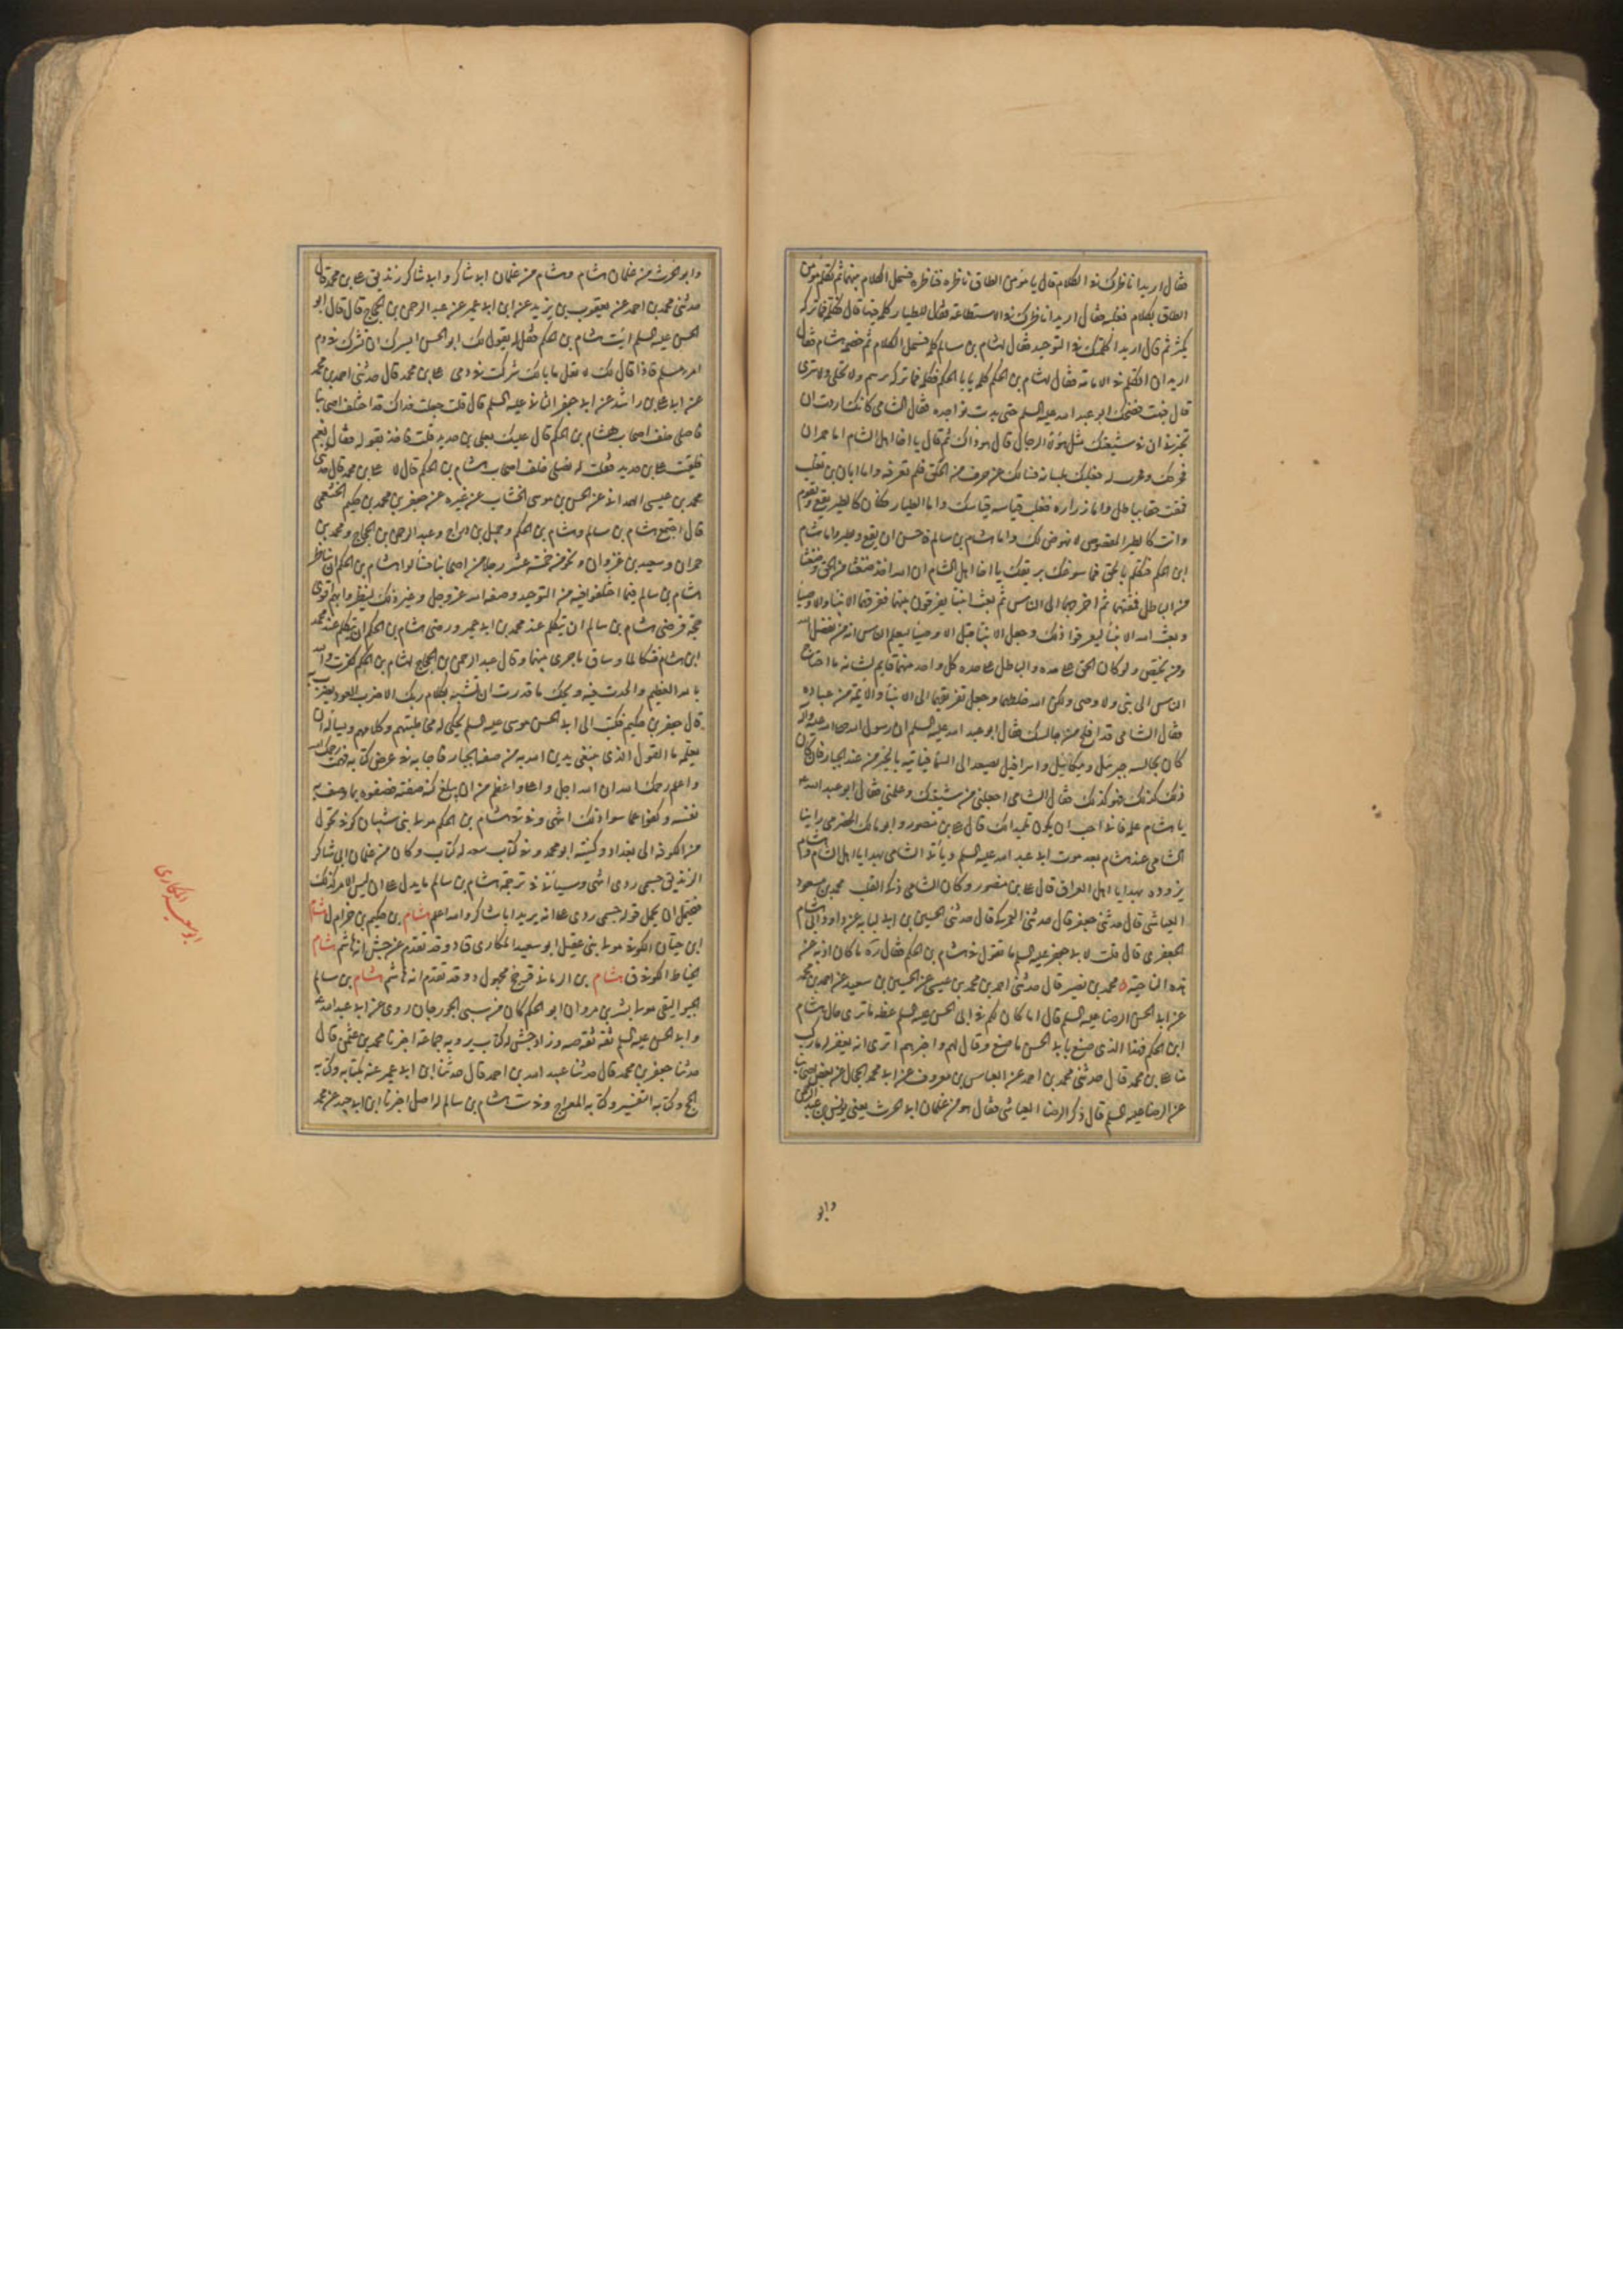 فقال اريد اناظرك في الكلام قال يا مؤمن الطاق ناظره فناظره فسجل الكلام بينهما ثم تكلم مؤمن
الطاق بكلام فغلبه فقال اريد اناظرك في الاستطاعة فقال للطيار كلمه فيها قال فكلمه فما تركه
يكشر ثم قال اريد اكلمك في التوحيد فقال لهشام بن سالم كلمه فسجل الكلام ثم خصمه هشام فقال
اريد ان اتكلم في الامامة فقال لهشام بن الحكم كلمه يا با الحكم فكلمه فما تركه يريم ولا يحلي ولا يمري
قال فبقي يضحك ابو عبد الله عليه السلم حتى بدت نواجده فقال الشامي كانك اردت ان
تخبرني ان في شيعتك مثل هؤلاء الرجال قال هو ذاك ثم قال يا اخا اهل الشام اما حمران
فحرفك فحرت له فغلبك بلسانه وسالك عن حرف من الحق فلم تعرفه واما ابان بن تغلب
فمغث حقا بباطل واما زرارة فغلب قياسه قياسك واما الطيار فكان كالطير يقع ويقوم
وانت كالطير المقصوص لا نهوض لك واما هشام بن سالم فاحسن ان يقع ويطير واما هشام
ابن الحكم فتكلم بالحق فما سوغك بريقك يا اخا اهل الشام ان الله اخذ ضغثا من الحق وضغثا
من الباطل فمغثهما ثم اخرجهما الى الناس ثم بعث انبياء يفرقون بينهما فعرفها الانبياء والاوصياء
وبعث الله الانبياء ليعرفوا ذلك وجعل الانبياء قبل الاوصياء ليعلم الناس انه من يفضل الله
ومن يختص ولو كان الحق على حده والباطل على حده كل واحد منهما قايم بشانه ما احتاج
الناس الى نبي ولا وصي ولكن الله خلطهما وجعل تفريقهما الى الانبياء والائمة من عباده
فقال الشامي قد افلح من جالسك فقال ابو عبد الله عليه السلم ان رسول الله صلى الله عليه واله
كان يجالسه جبرئيل وميكائيل واسرافيل يصعد الى السماء فياتيه بالخبر من عند الجبار فان كان
ذلك كذلك فهو كذلك فقال الشامي اجعلني من شيعتك وعلمني فقال ابو عبد الله ع
يا هشام علمه فاني احب ان يكون تلميذا لك قال علي بن منصور وابو مالك الحضرمي راينا
الشامي عند هشام بعد موت ابي عبد الله عليه السلم وياتي الشامي بهدايا اهل الشام وهشام
يزوده بهدايا اهل العراق قال علي بن منصور وكان الشامي ذكي القلب محمد بن مسعود
العياشي قال حدثني جعفر قال حدثني العمركي قال حدثني الحسين بن ابي لبابه عن داود ابي هاشم
الجعفري قال قلت لابي جعفر عليه السلم ما تقول في هشام بن الحكم فقال رحمه ما كان اذبه عن
هذه الناحية ٥ محمد بن نصير قال حدثني احمد بن محمد بن عيسى عن الحسين بن سعيد عن احمد بن محمد
عن ابي الحسن الرضا عليه السلم قال اما كان لكم في ابي الحسن عليه السلم عظة ما ترى حال هشام
ابن الحكم فهذا الذي صنع بابي الحسن ما صنع وقال لهم واخبرهم اترى انه يغفر له ما ركب
منا علي بن محمد قال حدثني محمد بن احمد عن العباس بن معروف عن ابي محمد الحجال عن بعض اصحابنا
عن الرضا عليه السلم قال ذكر الرضا العباسي فقال هو من غلمان ابي الحرث يعني يونس بن عبد الرحمن
وابو
وابو الحرث من غلمان هشام وهشام من غلمان ابي شاكر وابو شاكر زنديق علي بن محمد قال
حدثني محمد بن احمد عن يعقوب بن يزيد عن ابن ابي عمير عن عبد الرحمن بن الحجاج قال قال ابو
الحسن عليه السلم ائت هشام بن الحكم فقل له يقول لك ابو الحسن ايسرك ان تشرك في دم
امرء مسلم فاذا قال لك لا فقل ما بالك شركت في دمي علي بن محمد قال حدثني احمد بن محمد
عن ابي علي بن راشد عن ابي جعفر الثاني عليه السلم قال قلت جعلت فداك قد اختلف اصحابنا
فاصلي خلف اصحاب هشام بن الحكم قال عليك بعلي بن حديد قلت فاخذ بقوله فقال نعم
فلقيت علي بن حديد فقلت له نصلي خلف اصحاب هشام بن الحكم قال لا علي بن محمد قال حدثني
محمد بن عيسى الهمداني عن الحسن بن موسى الخشاب عن غيره عن جعفر بن محمد بن حكيم الخثعمي
قال اجتمع هشام بن سالم وهشام بن الحكم وجميل بن دراج وعبد الرحمن بن الحجاج ومحمد بن
حمران وسعيد بن غزوان ونحو من خمسة عشر رجلا من اصحابنا فسألوا هشام بن الحكم ان يناظر
هشام بن سالم فيما اختلفوا فيه من التوحيد وصفة الله عز وجل وغير ذلك لينظروا ايهم اقوى
حجة فرضى هشام بن سالم ان يتكلم عند محمد بن ابي عمير ورضى هشام بن الحكم ان يتكلم عند محمد
ابن هشام فتكالما وساق ما جرى بينهما وقال عبد الرحمن بن الحجاج لهشام بن الحكم كفرت والله
بالله العظيم والحدت فيه ويحك ما قدرت ان تشبه بكلام ربك الا ضرب العود يضرب به
قال جعفر بن حكيم فكتب الى ابي الحسن موسى عليه السلم يحكي له مخاطبتهم وكلامهم ويساله ان
يعلمه ما القول الذي ينبغي يدين الله به من صفة الجبار فاجابه في عرض كتابه فهمت رحمك الله
واعلم رحمك الله ان الله اجل واعلى واعظم من ان يبلغ كنه صفته فصفوه بما وصف به
نفسه وكفوا عما سوا ذلك انتهى وفي هشام بن الحكم مولى بني شيبان كوفي تحول
من الكوفة الى بغداد وكنيته ابو محمد وفي كتاب سعد له كتاب وكان من غلمان ابي شاكر
الزنديق جسمي ردي انتهى وسياتي في ترجمة هشام بن سالم ما يدل على ان ليس الامر كذلك
فيحتمل ان يحمل قوله جسمي ردي على انه يريد ابا شاكر والله اعلم هشام بن حكيم بن حزام ل هشام
ابن حيان الكوفي مولى بني عقيل ابو سعيد المكاري ق د وقد تقدم عن جش انه هاشم هشام
الخياط الكوفي ق هشام بن الرماني قرخ مجهول د وقد تقدم انه هاشم هشام بن سالم
الجواليقي مولى بشر بن مروان ابو الحكم كان من سبي الجوزجان روى عن ابي عبد الله ع
وابي الحسن عليه السلم ثقة ثقة صه وزاد جش له كتاب يرويه جماعة اخبرنا محمد بن عثمن قال
حدثنا جعفر بن محمد قال حدثنا عبيد الله بن احمد قال حدثنا ابن ابي عمير عنه بكتابه وكتابه
الحج وكتابه التفسير وكتابه المعراج وفي ست هشام بن سالم له اصل اخبرنا ابن ابي جيد عن محمد
ابو سعيد المكاري